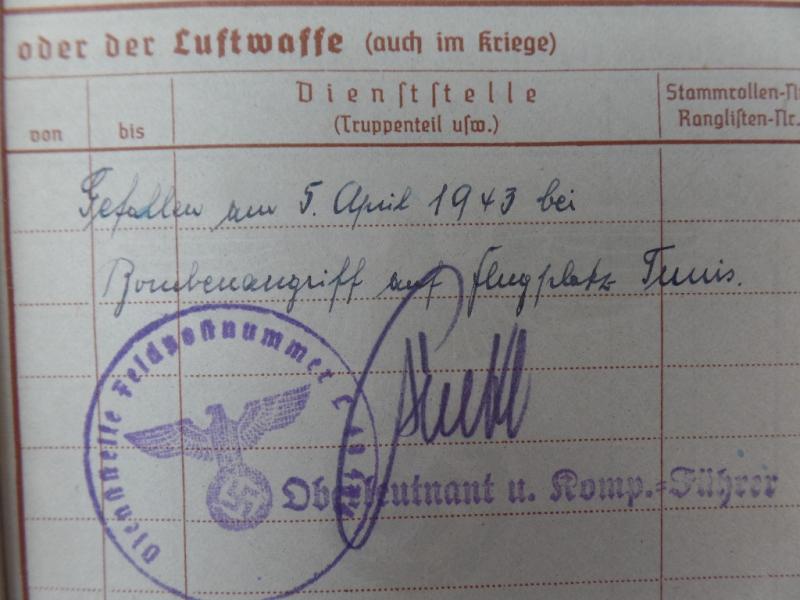 oder der Luftwaffe (auch im Kriege)
von
bis
Dienststelle
(Truppenteil usw.)
Stammrollen-Nr.
Ranglisten-Nr.
Gefallen am 5. April 1943 bei
Bombenangriff auf Flugplatz Tunis.
Dienststelle Feldpostnummer L
Oberleutnant u. Komp.=Führer